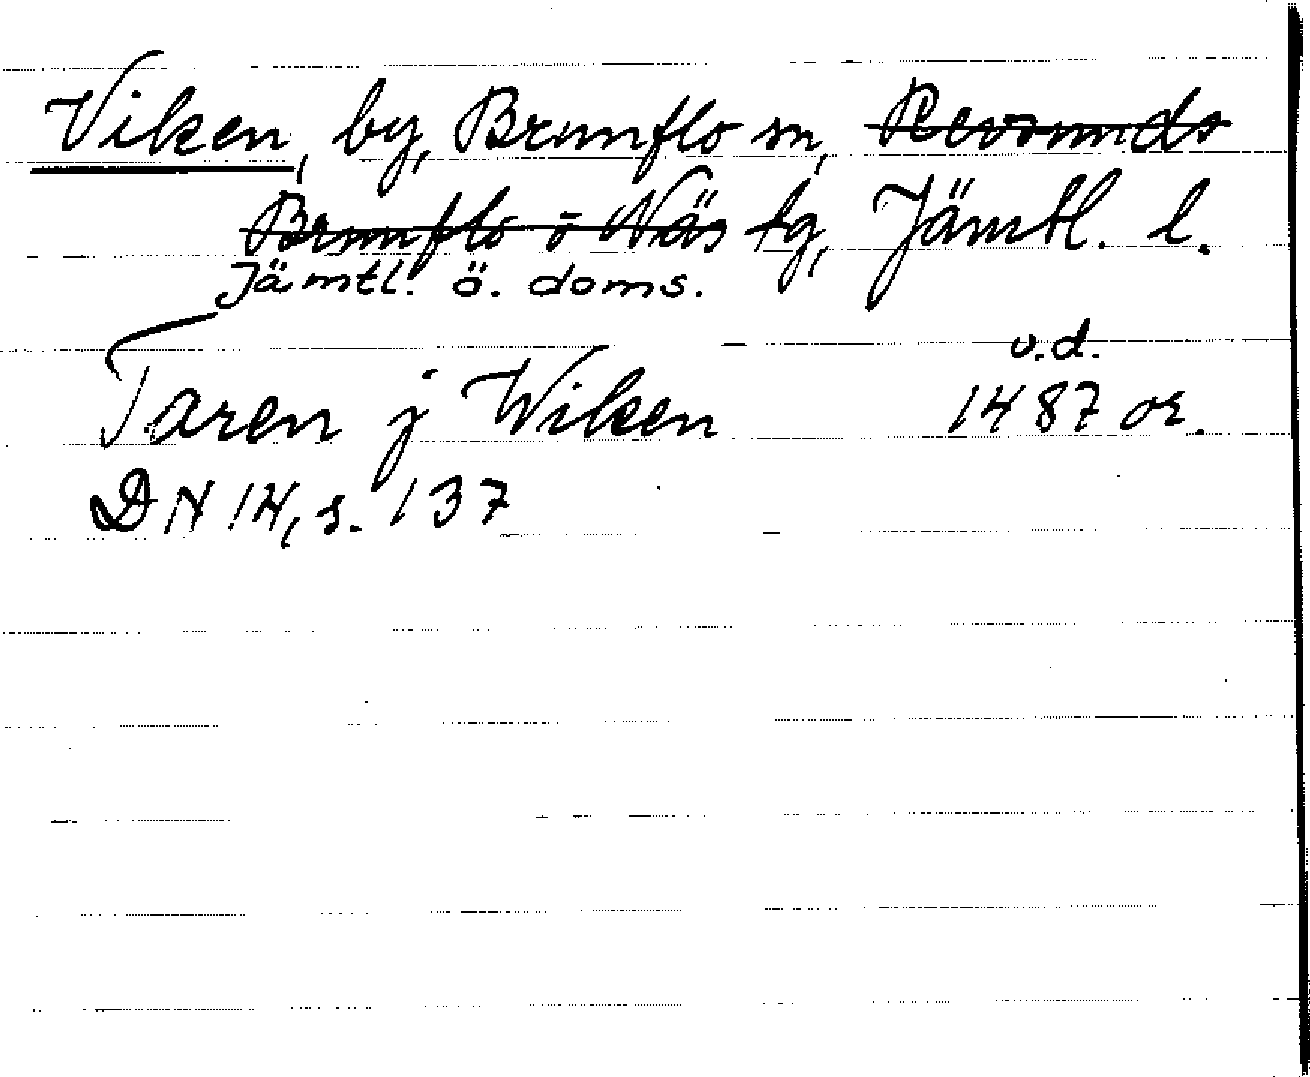 Viken, by, Brunflo sn, Revsunds
Brunflo o Näs tg, Jämtl. l.
Jämtl. ö. doms.
u.d.
Taren j Wiken 1487 or.
DN 14, s. 137